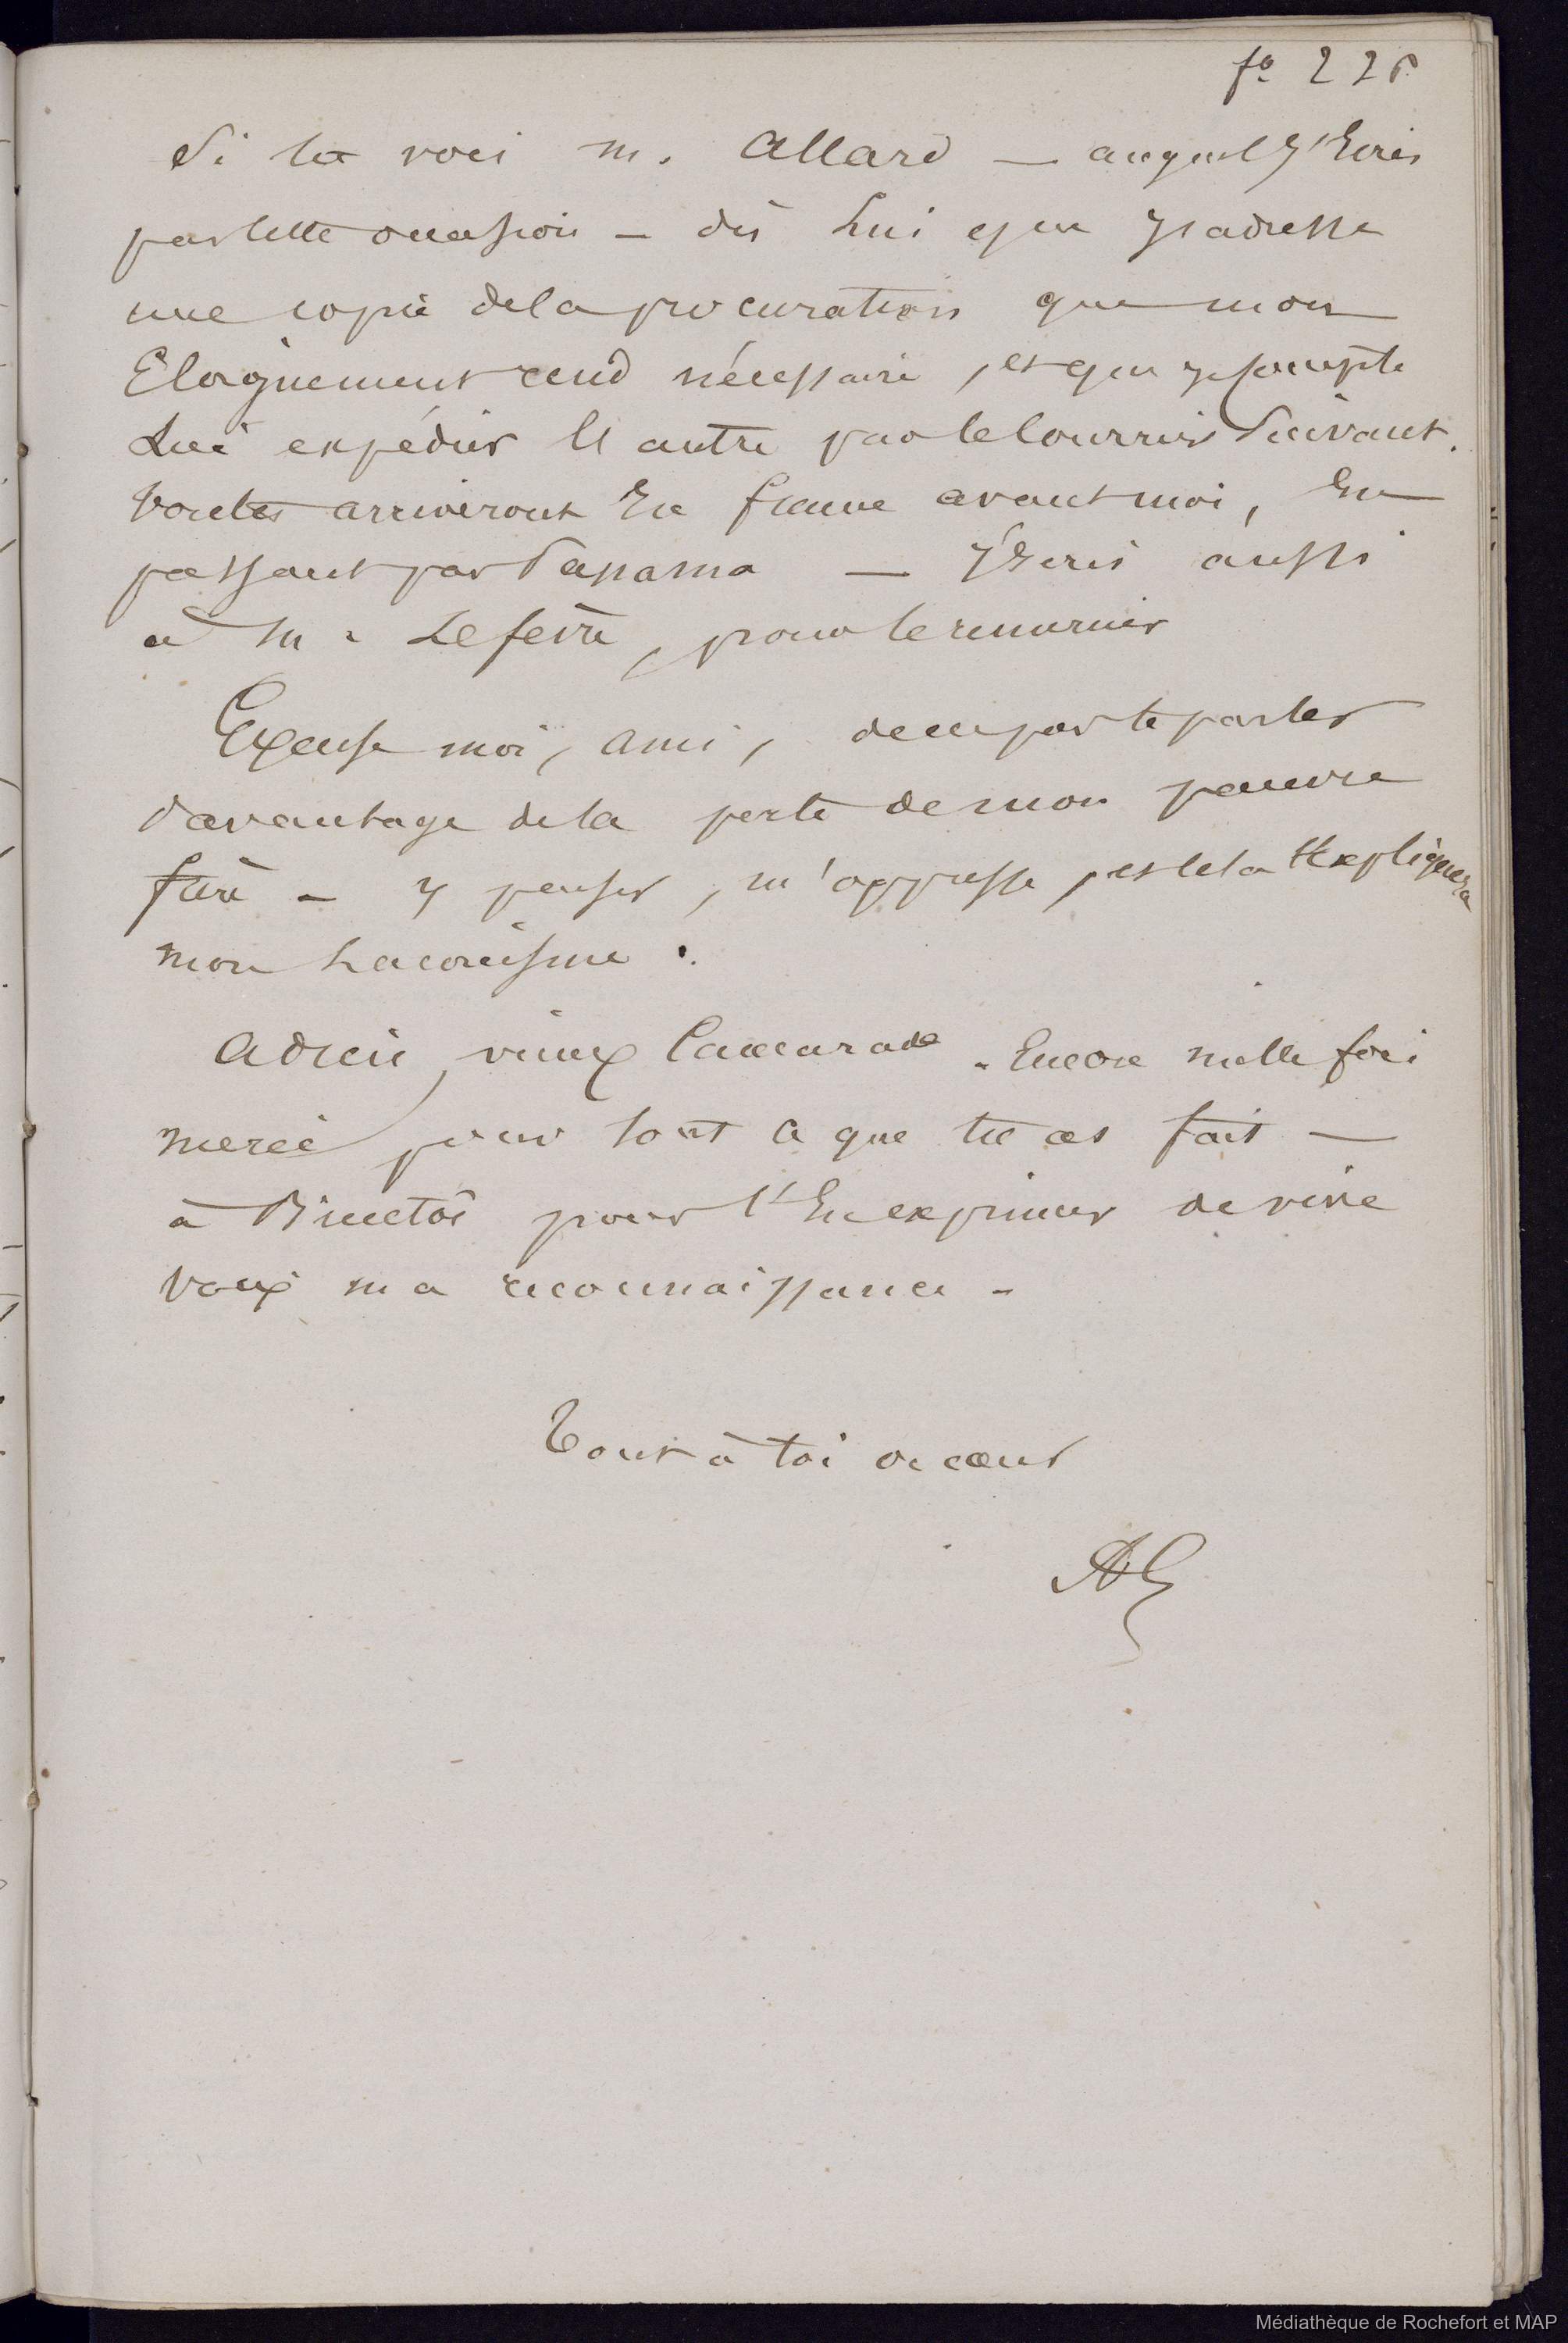 fo 226
Si tu vois M. Allard — auquel J'Ecris
par cette occasion — dis Lui que J'adresse
une copie de la procuration que mon
Eloignement rend nécessaire, et que je compte
Lui expédier l'autre par le Courrier Suivant.
Toutes arriveront En France avant moi, En
passant par Panama — J'Ecris aussi
à M. Lefèvre, pour le remercier
Excuse moi, ami, de ne pas te parler
davantage de la perte de mon pauvre
frère — y penser, m'oppresse, et cela t'expliquera
mon Laconisme.
Adieu, vieux Camarade. Encore mille fois
merci pour tout ce que tu as fait —
à Bientôt pour t'En exprimer de vive
voix ma reconnaissance —
Tout à toi de cœur